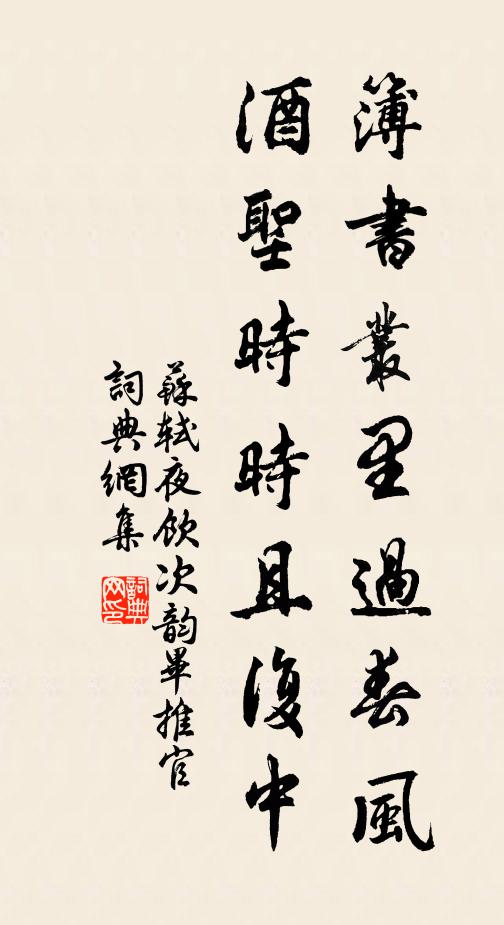 簿書叢里過春風
酒聖時時且復中
蘇軾夜飲次韵畢推官
詞典網集
詞典網印